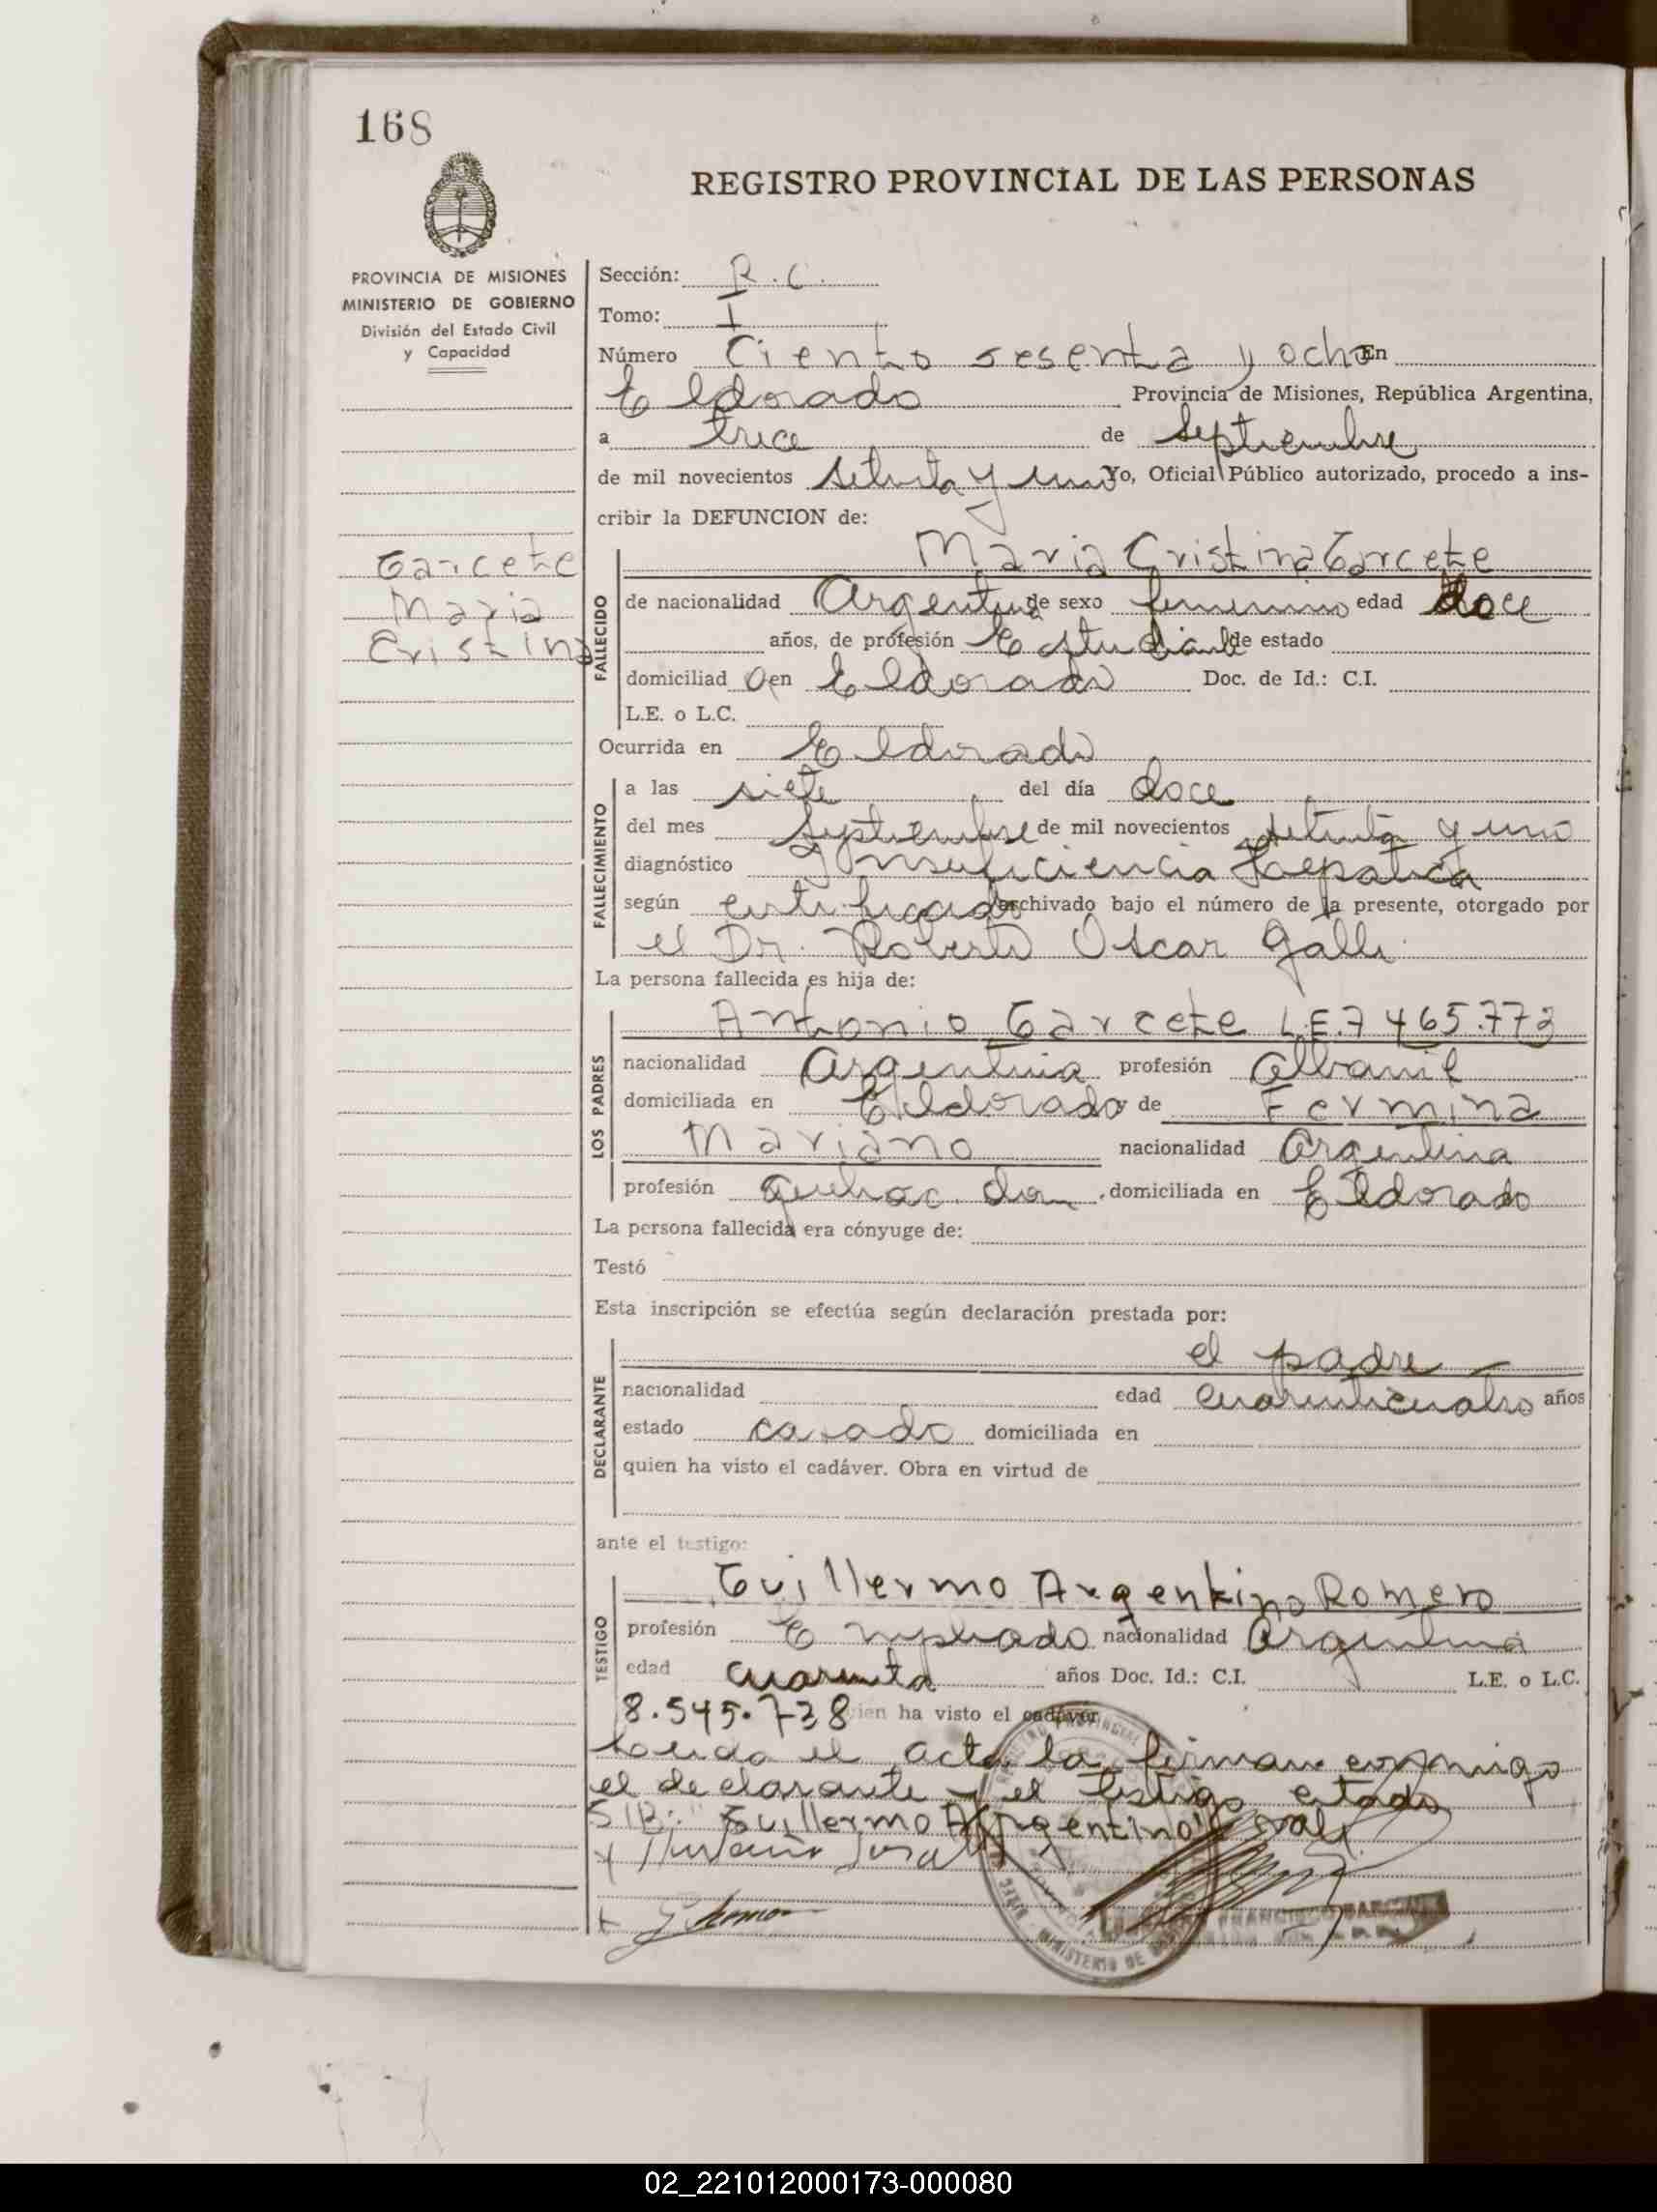 168
REGISTRO PROVINCIAL DE LAS PERSONAS
PROVINCIA DE MISIONES
MINISTERIO DE GOBIERNO
División del Estado Civil
y Capacidad
Garcete
Maria
Cristina
Sección: R.C.
Tomo: I
Número Ciento sesenta y ocho En
Eldorado Provincia de Misiones, República Argentina,
a trece de Septiembre
de mil novecientos setenta y uno Yo, Oficial Público autorizado, procedo a ins-
cribir la DEFUNCION de:
FALLECIDO
Maria Cristina Garcete
de nacionalidad Argentina de sexo femenino edad doce
años, de profesión Estudiante de estado
domiciliad a en Eldorado Doc. de Id.: C.I.
L.E. o L.C.
Ocurrida en Eldorado
FALLECIMIENTO
a las siete del día doce
del mes Septiembre de mil novecientos setenta y uno
diagnóstico Insuficiencia Hepatica
según certificado archivado bajo el número de la presente, otorgado por
el Dr. Roberto Oscar Galli
La persona fallecida es hija de:
LOS PADRES
Antonio Garcete L.E. 7465.773
nacionalidad Argentina profesión Albanil
domiciliada en Eldorado y de Fermina
Mariano nacionalidad Argentina
profesión quehac. dom , domiciliada en Eldorado
La persona fallecida era cónyuge de:
Testó
Esta inscripción se efectúa según declaración prestada por:
DECLARANTE
el padre
nacionalidad edad cuarenticuatro años
estado casado domiciliada en
quien ha visto el cadáver. Obra en virtud de
ante el testigo:
TESTIGO
Guillermo Argentino Romero
profesión Empleado nacionalidad Argentina
edad cuarenta años Doc. Id.: C.I. L.E. o L.C.
8.545.738 quien ha visto el cadáver
Leida el acta la firman conmigo
el declarante y el testigo citado
S/B: "Guillermo Argentino" vale
02_221012000173-000080